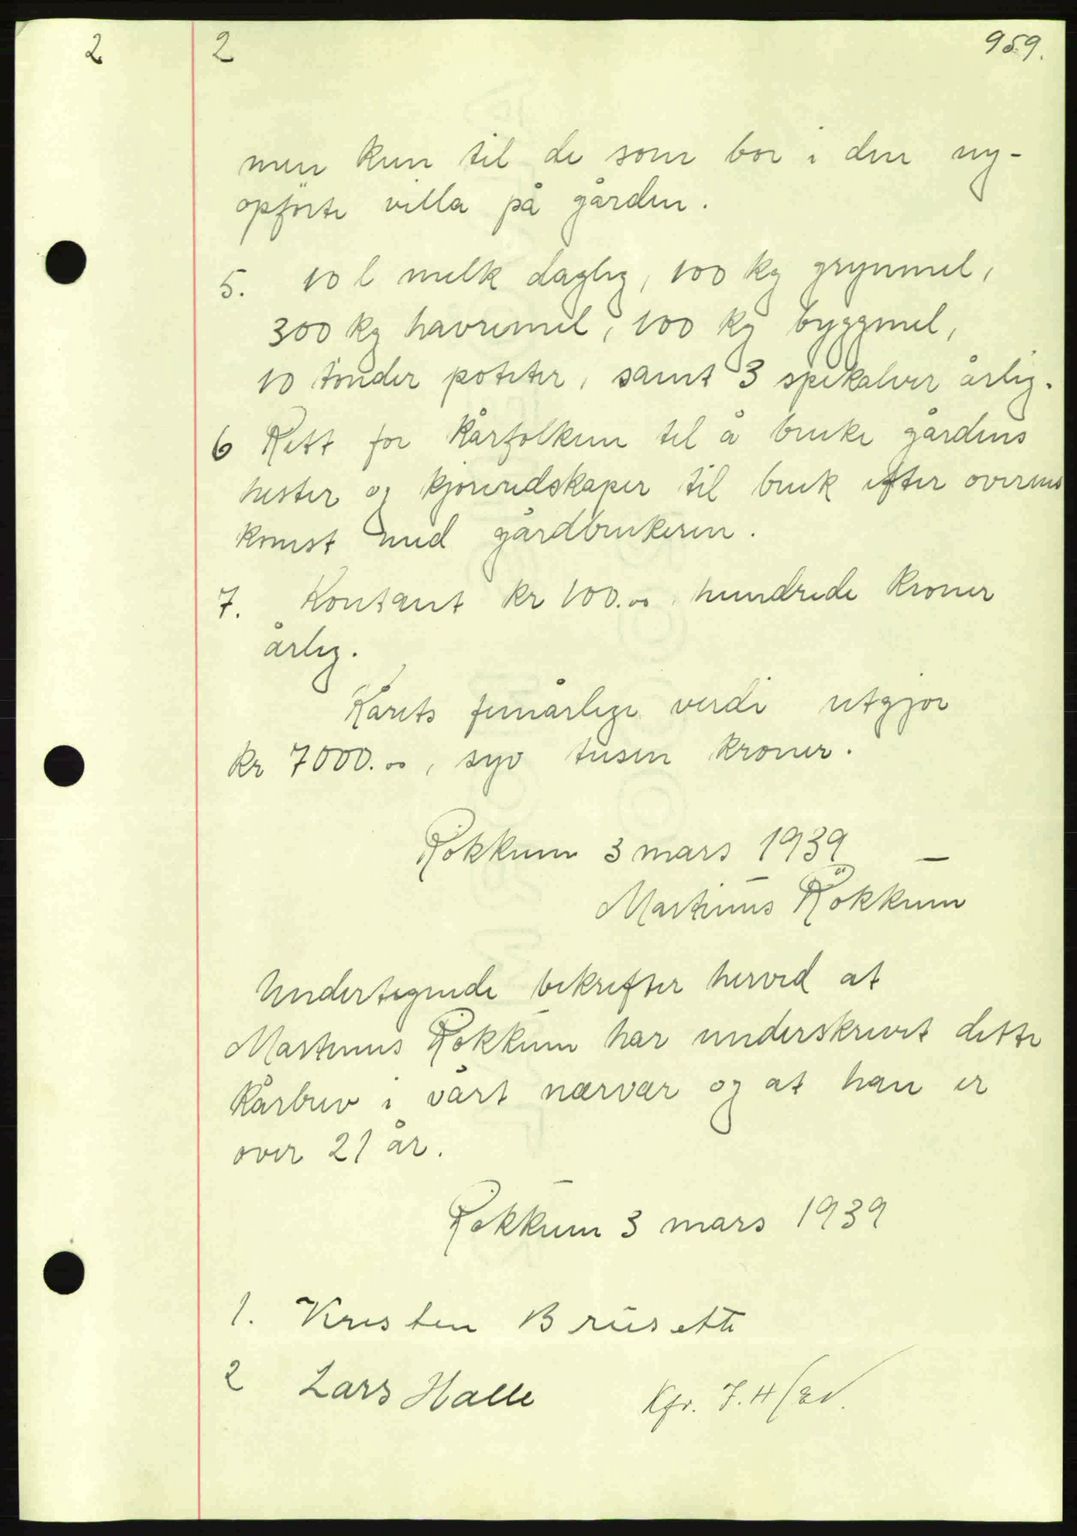 2 2 959.
men kun til de som bor i den ny-
opförte villa på gården.
5. 10 l melk daglig, 100 kg grynmel,
300 kg havremel, 100 kg byggmel,
10 tönder poteter, samt 3 spekalver årlig.
6 Rett for kårfolkene til å bruke gårdens
hester og kjöreredskaper til bruk efter overens
komst med gårdbrukeren.
7. Kontant kr 100.00 hundrede kroner
årlig.
Kårets femårlige verdi utgjör
kr 7000.00, syv tusen kroner.
Rökkum 3 mars 1939
Martinus Rökkum
Undertegnede bekrefter herved at
Martinus Rökkum har underskrevet dette
kårbrev i vårt nærvær og at han er
over 21 år.
Rökkum 3 mars 1939
1. Kristen Brusette
2 Lars Halle
Kfr. J.H/